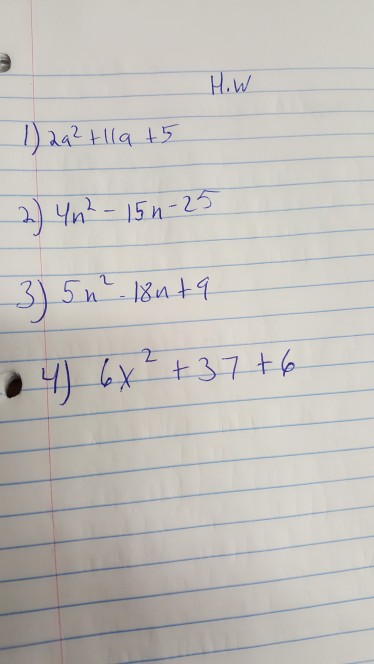 H.W
1) 2a² + 11a + 5
2) 4n² - 15n - 25
3) 5n² - 18n + 9
4) 6x² + 37 + 6